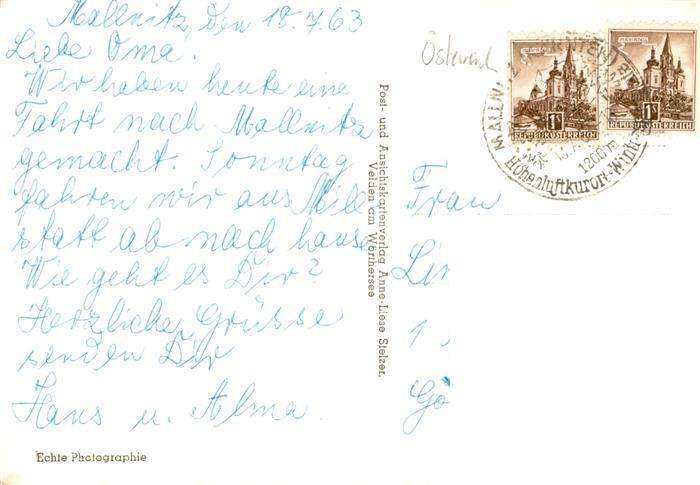 Mallnitz, den 18.7.63
Liebe Oma.
Wir haben heute eine
Fahrt nach Mallnitz
gemacht. Sonntag
fahren wir aus Mill
statt ab nach hause
Wie geht es Dir?
Herzliche Grüsse
senden Dir
Hans u. Alma.
Echte Photographie
Post- und Ansichtskartenverlag Anne-Liese Stelzer,
Velden am Wörthersee
Österreich
MARIAZELL
1S
REPUBLIK ÖSTERREICH
1S
REPUBLIK ÖSTERREICH
MALLN
1200 m
Höhenluftkurort
Frau
1.